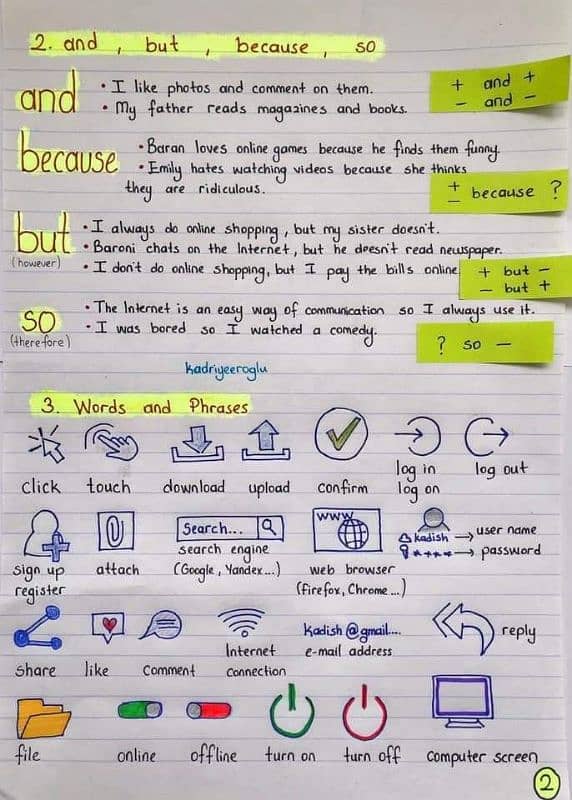 2. and , but , because , so
and
• I like photos and comment on them.
• My father reads magazines and books.
+ and +
- and -
because
• Baran loves online games because he finds them funny.
• Emily hates watching videos because she thinks
they are ridiculous.
+
- because ?
but
(however)
• I always do online shopping, but my sister doesn't.
• Baroni chats on the Internet, but he doesn't read newspaper.
• I don't do online shopping, but I pay the bills online.
+ but -
- but +
so
(therefore)
• The Internet is an easy way of communication so I always use it.
• I was bored so I watched a comedy.
? so -
kadriyeeroglu
3. Words and Phrases
click
touch
download
upload
confirm
log in
log on
log out
sign up
register
attach
Search...
search engine
(Google, Yandex...)
www
web browser
(firefox, Chrome...)
kadish → user name
**** → password
share
like
comment
Internet
connection
kadish@gmail....
e-mail address
reply
file
online
offline
turn on
turn off
computer screen
2